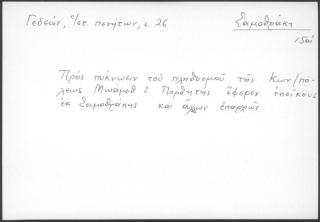 Γεδεών, σ. 26
Σαμοθράκη
15ου
Πρός πύκνωσιν τοῦ πληθυσμοῦ τῆς Κων/πό-
λεως Μωάμεθ ὁ Πορθητής ἔφερεν ἐποίκους
ἐκ Σαμοθράκης καί ἄλλων ἐπαρχιῶν.